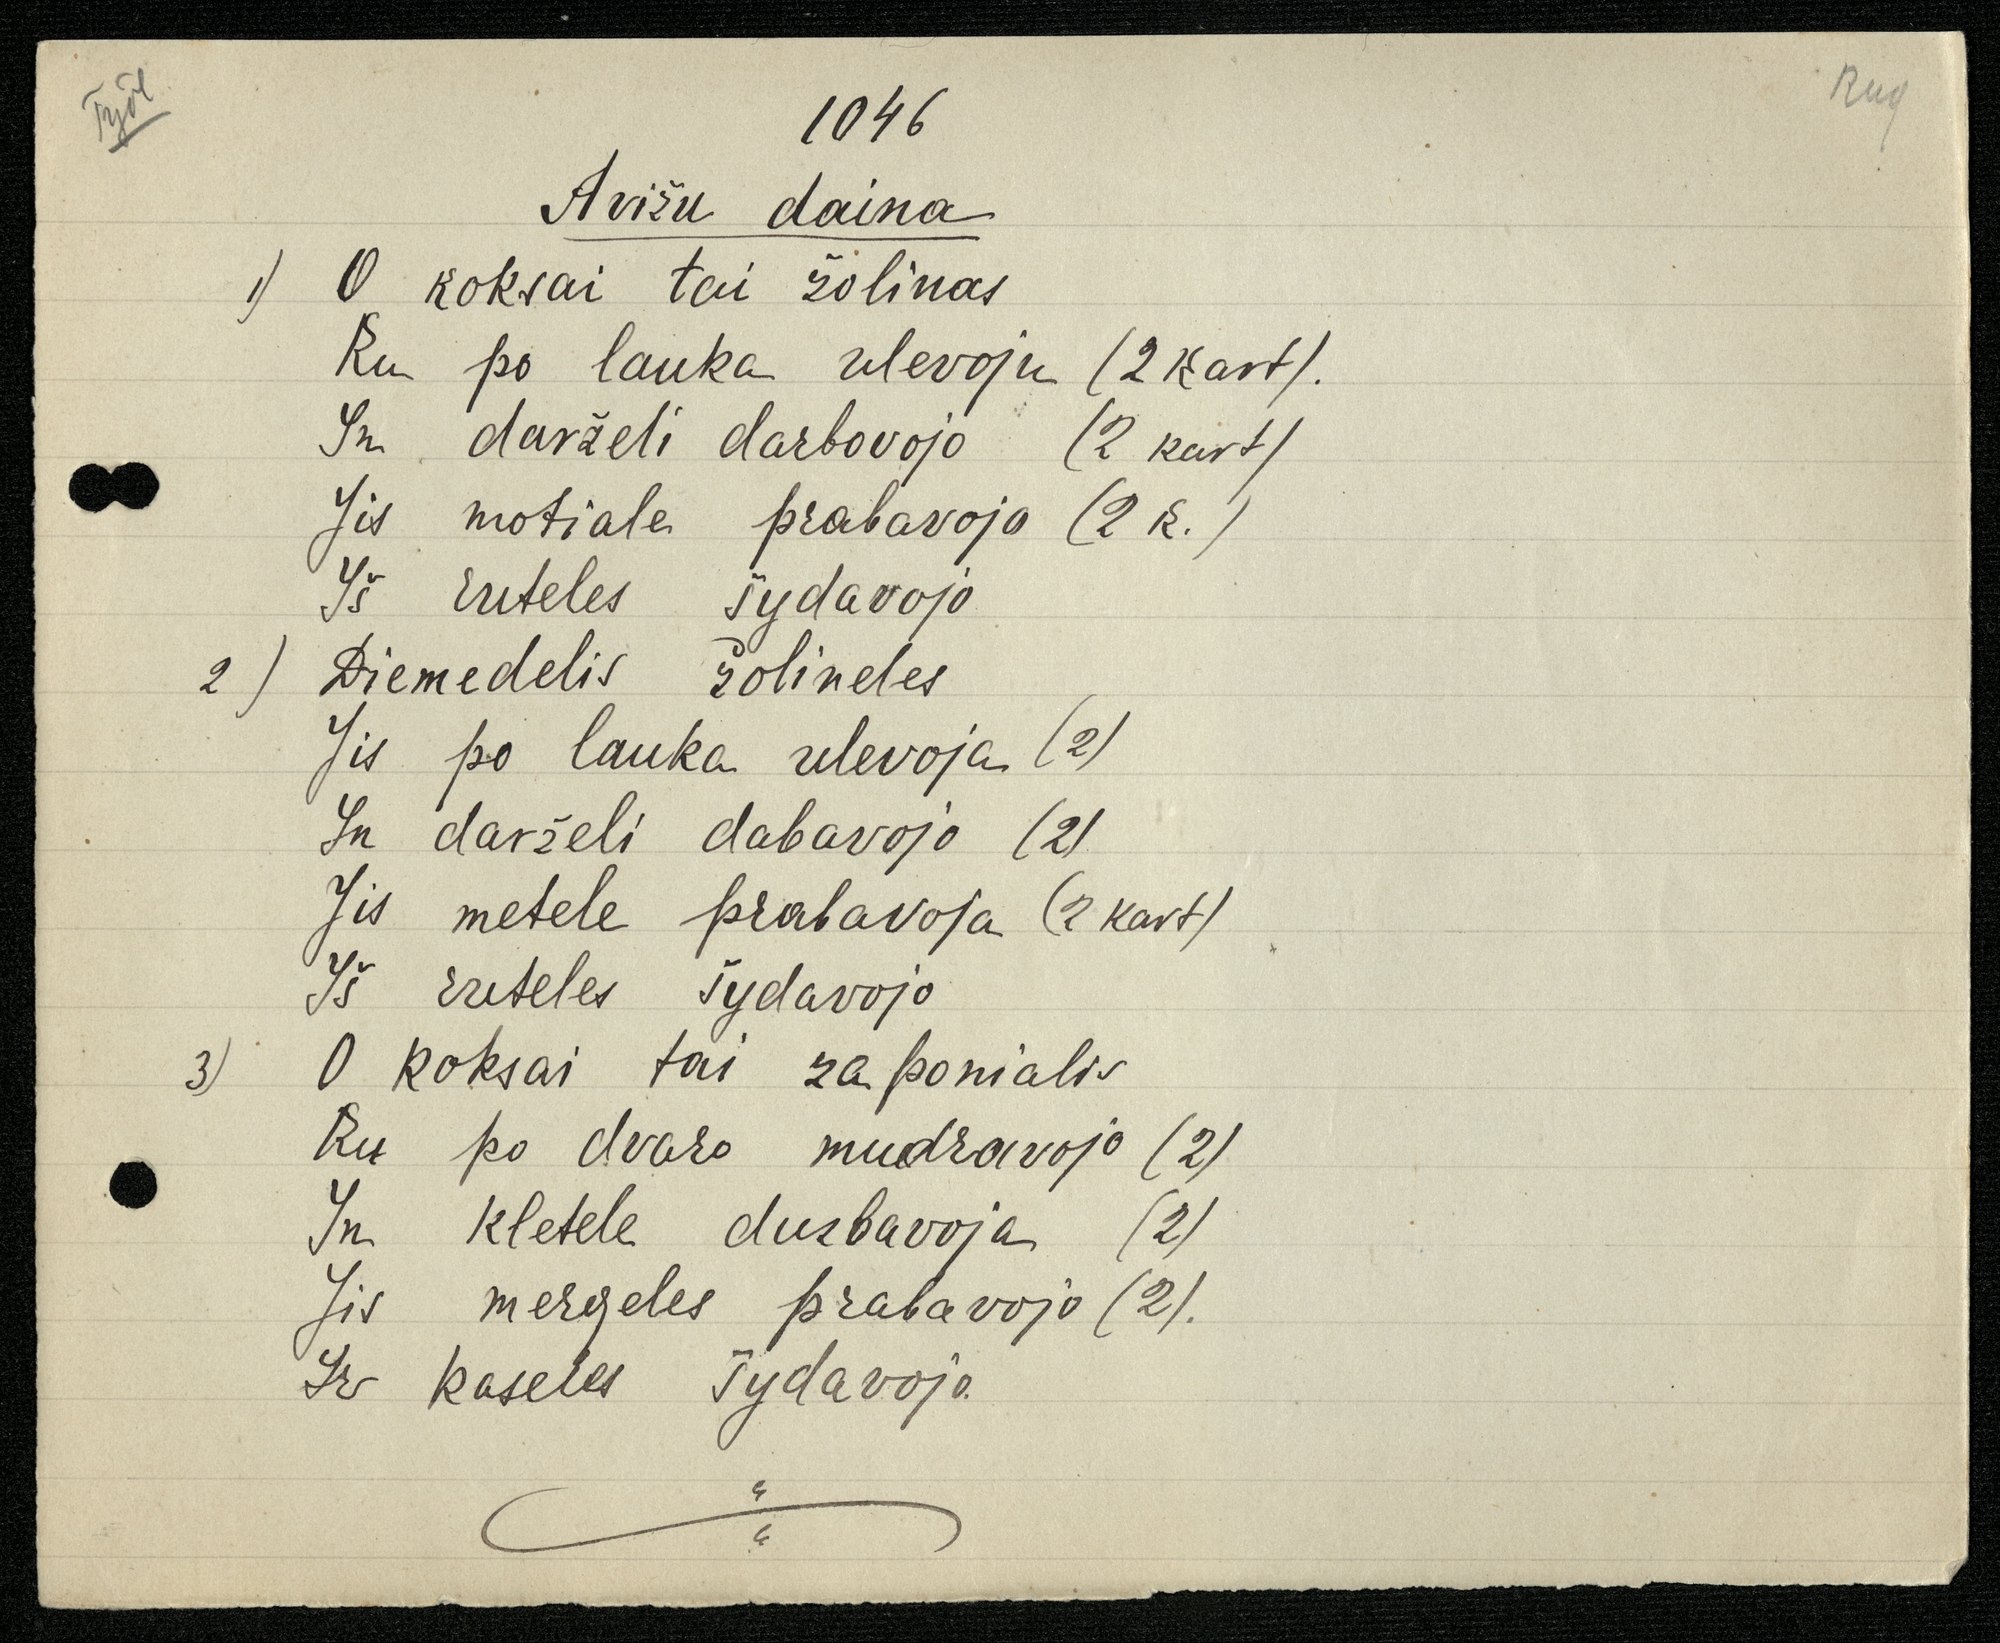 Rug
1046
Avižu daina
1) O koksai tai žolinas
Ku po lauka ulevoju (2 kart).
In darželi darbovojo (2 kart)
Jis motiale prabavojo (2 k.)
Iš ruteles šydavojo
2) Diemedelis žolineles
Jis po lauka ulevoja (2)
In darželi dabavojo (2)
Jis metele prabavoja (2 kart)
Iš ruteles šydavojo
3) O koksai tai zaponialis
Ku po dvaro mudravojo (2)
In kletele durbavoja (2)
Jis mergeles prabavojo (2).
Ir kaseles šydavojo.